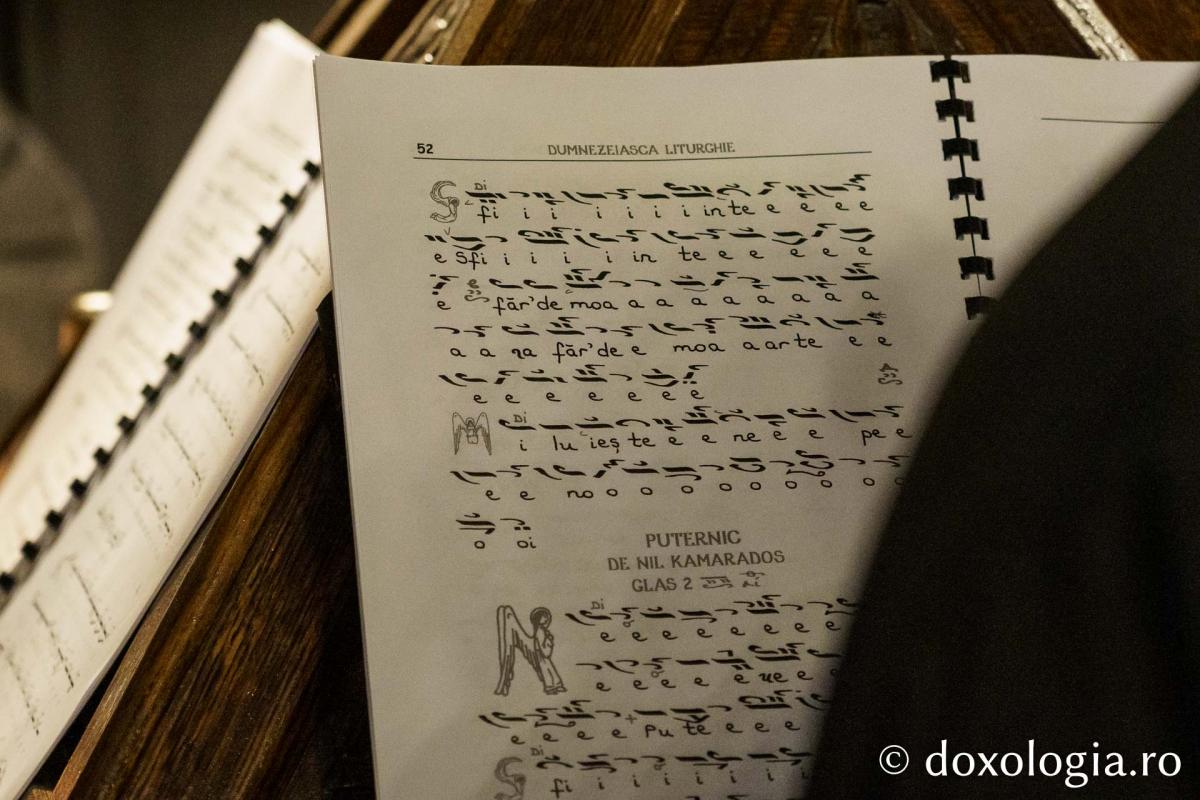 52 DUMNEZEIASCA LITURGHIE
Di
S fi i i i i i i in te e e e e
e Sfi i i i i in te e e e e e
e făr'de moa a a a a a a a a
a a ra făr'de e moa a ar te e e
e e e e e e
Di
M i lu ieș te e e ne e e pe e
e e no o o o o o o o o
o oi
PUTERNIC
DE NIL KAMARADOS
GLAS 2
Di
e e e e e e e e
e e e e ue e
e e e e Pu te e e e
Di
S fi i i i i i i
© doxologia.ro